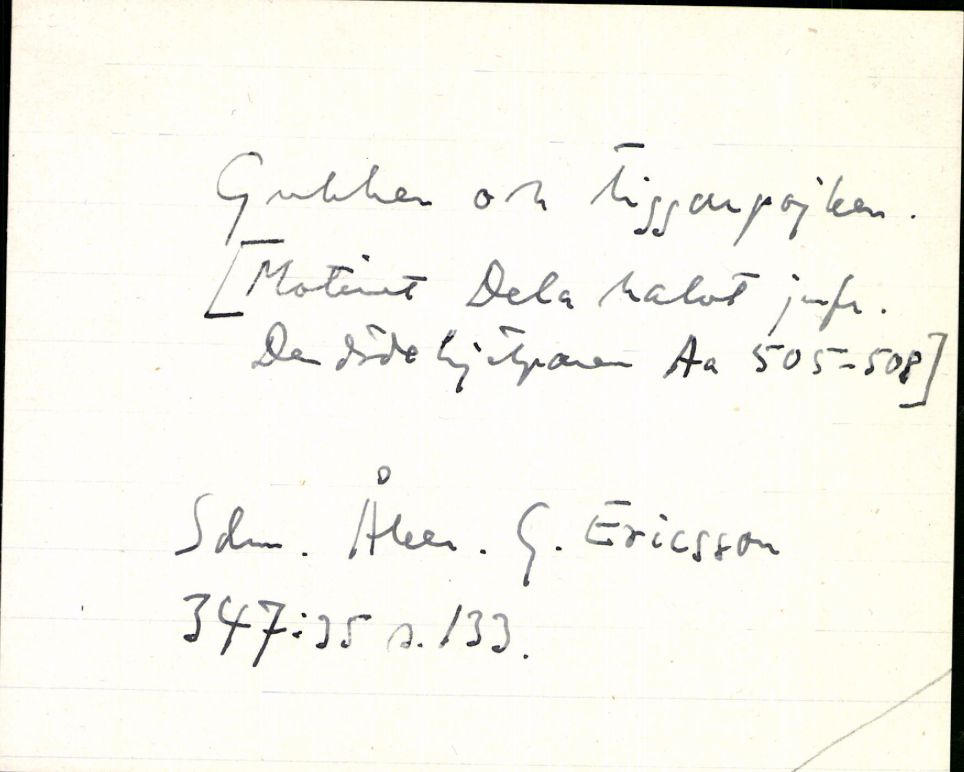 Gubben och tiggarpojken.
[Motivet Dela halvt jmfr.
Den döde hjälparen Aa 505-508]
Sdm. Åker. G. Ericsson
347:35 s. 133.